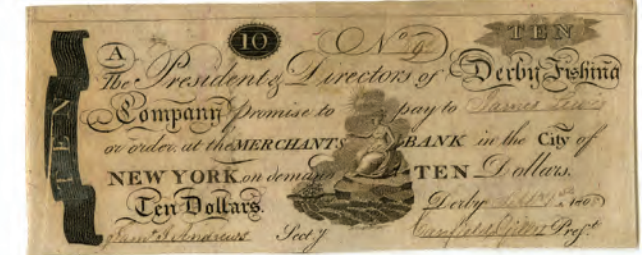 TEN
A 10 No 192
The President & Directors of Derby Fishing
Company promise to pay to James Lewis
or order, at the MERCHANTS BANK in the City of
NEW YORK on demand TEN Dollars.
Ten Dollars. Derby 1808
Secty Canfield Gillet Prest
TEN